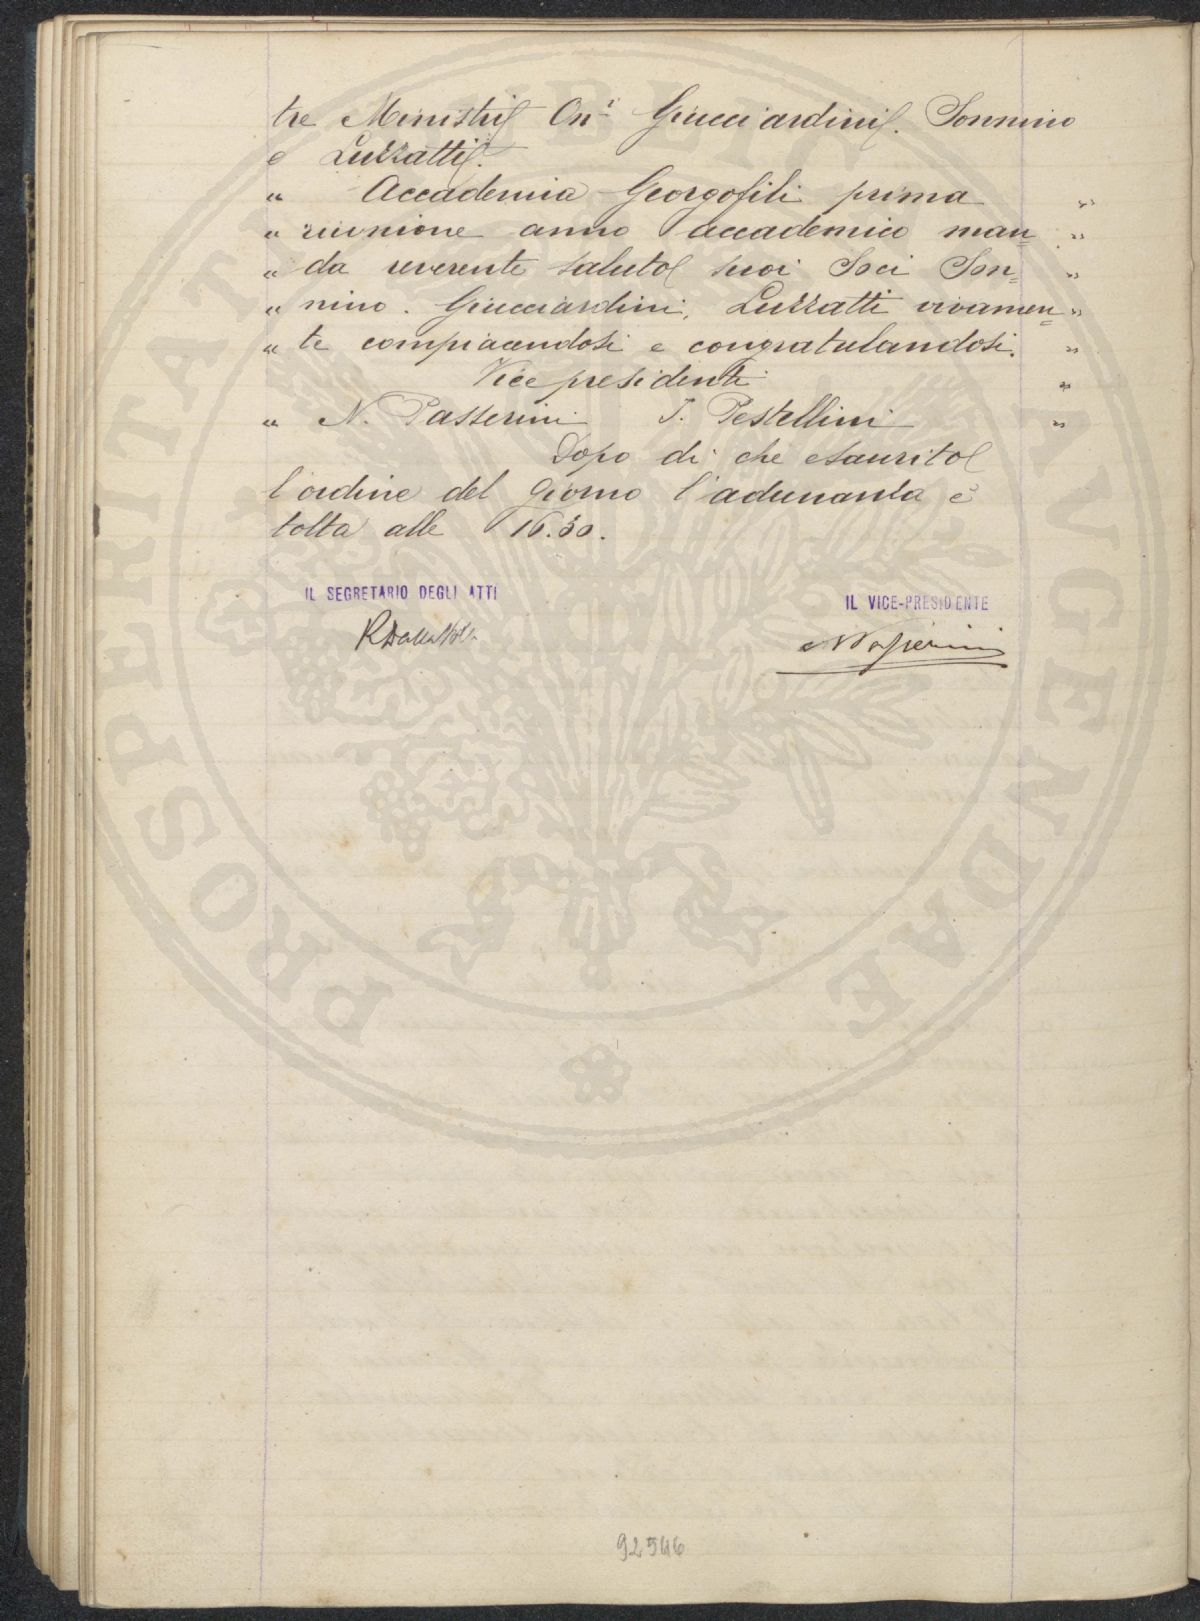 tre Ministri Oni Guicciardini. Sonnino
e Luzzatti.
" Accademia Georgofili prima "
" riunione anno accademico man= "
" da reverente saluto suoi Soci Son= "
" nino. Guicciardini, Luzzatti vivamen= "
" te compiacendosi e congratulandosi. "
Vice presidenti "
" N. Passerini I. Pestellini "
Dopo di che esaurito
l'ordine del giorno l'adunanza è
tolta alle 16.30.
IL SEGRETARIO DEGLI ATTI
IL VICE-PRESIDENTE
R Dalla Volta
N Passerini
92546
PROSPERITATI AVGENDAE